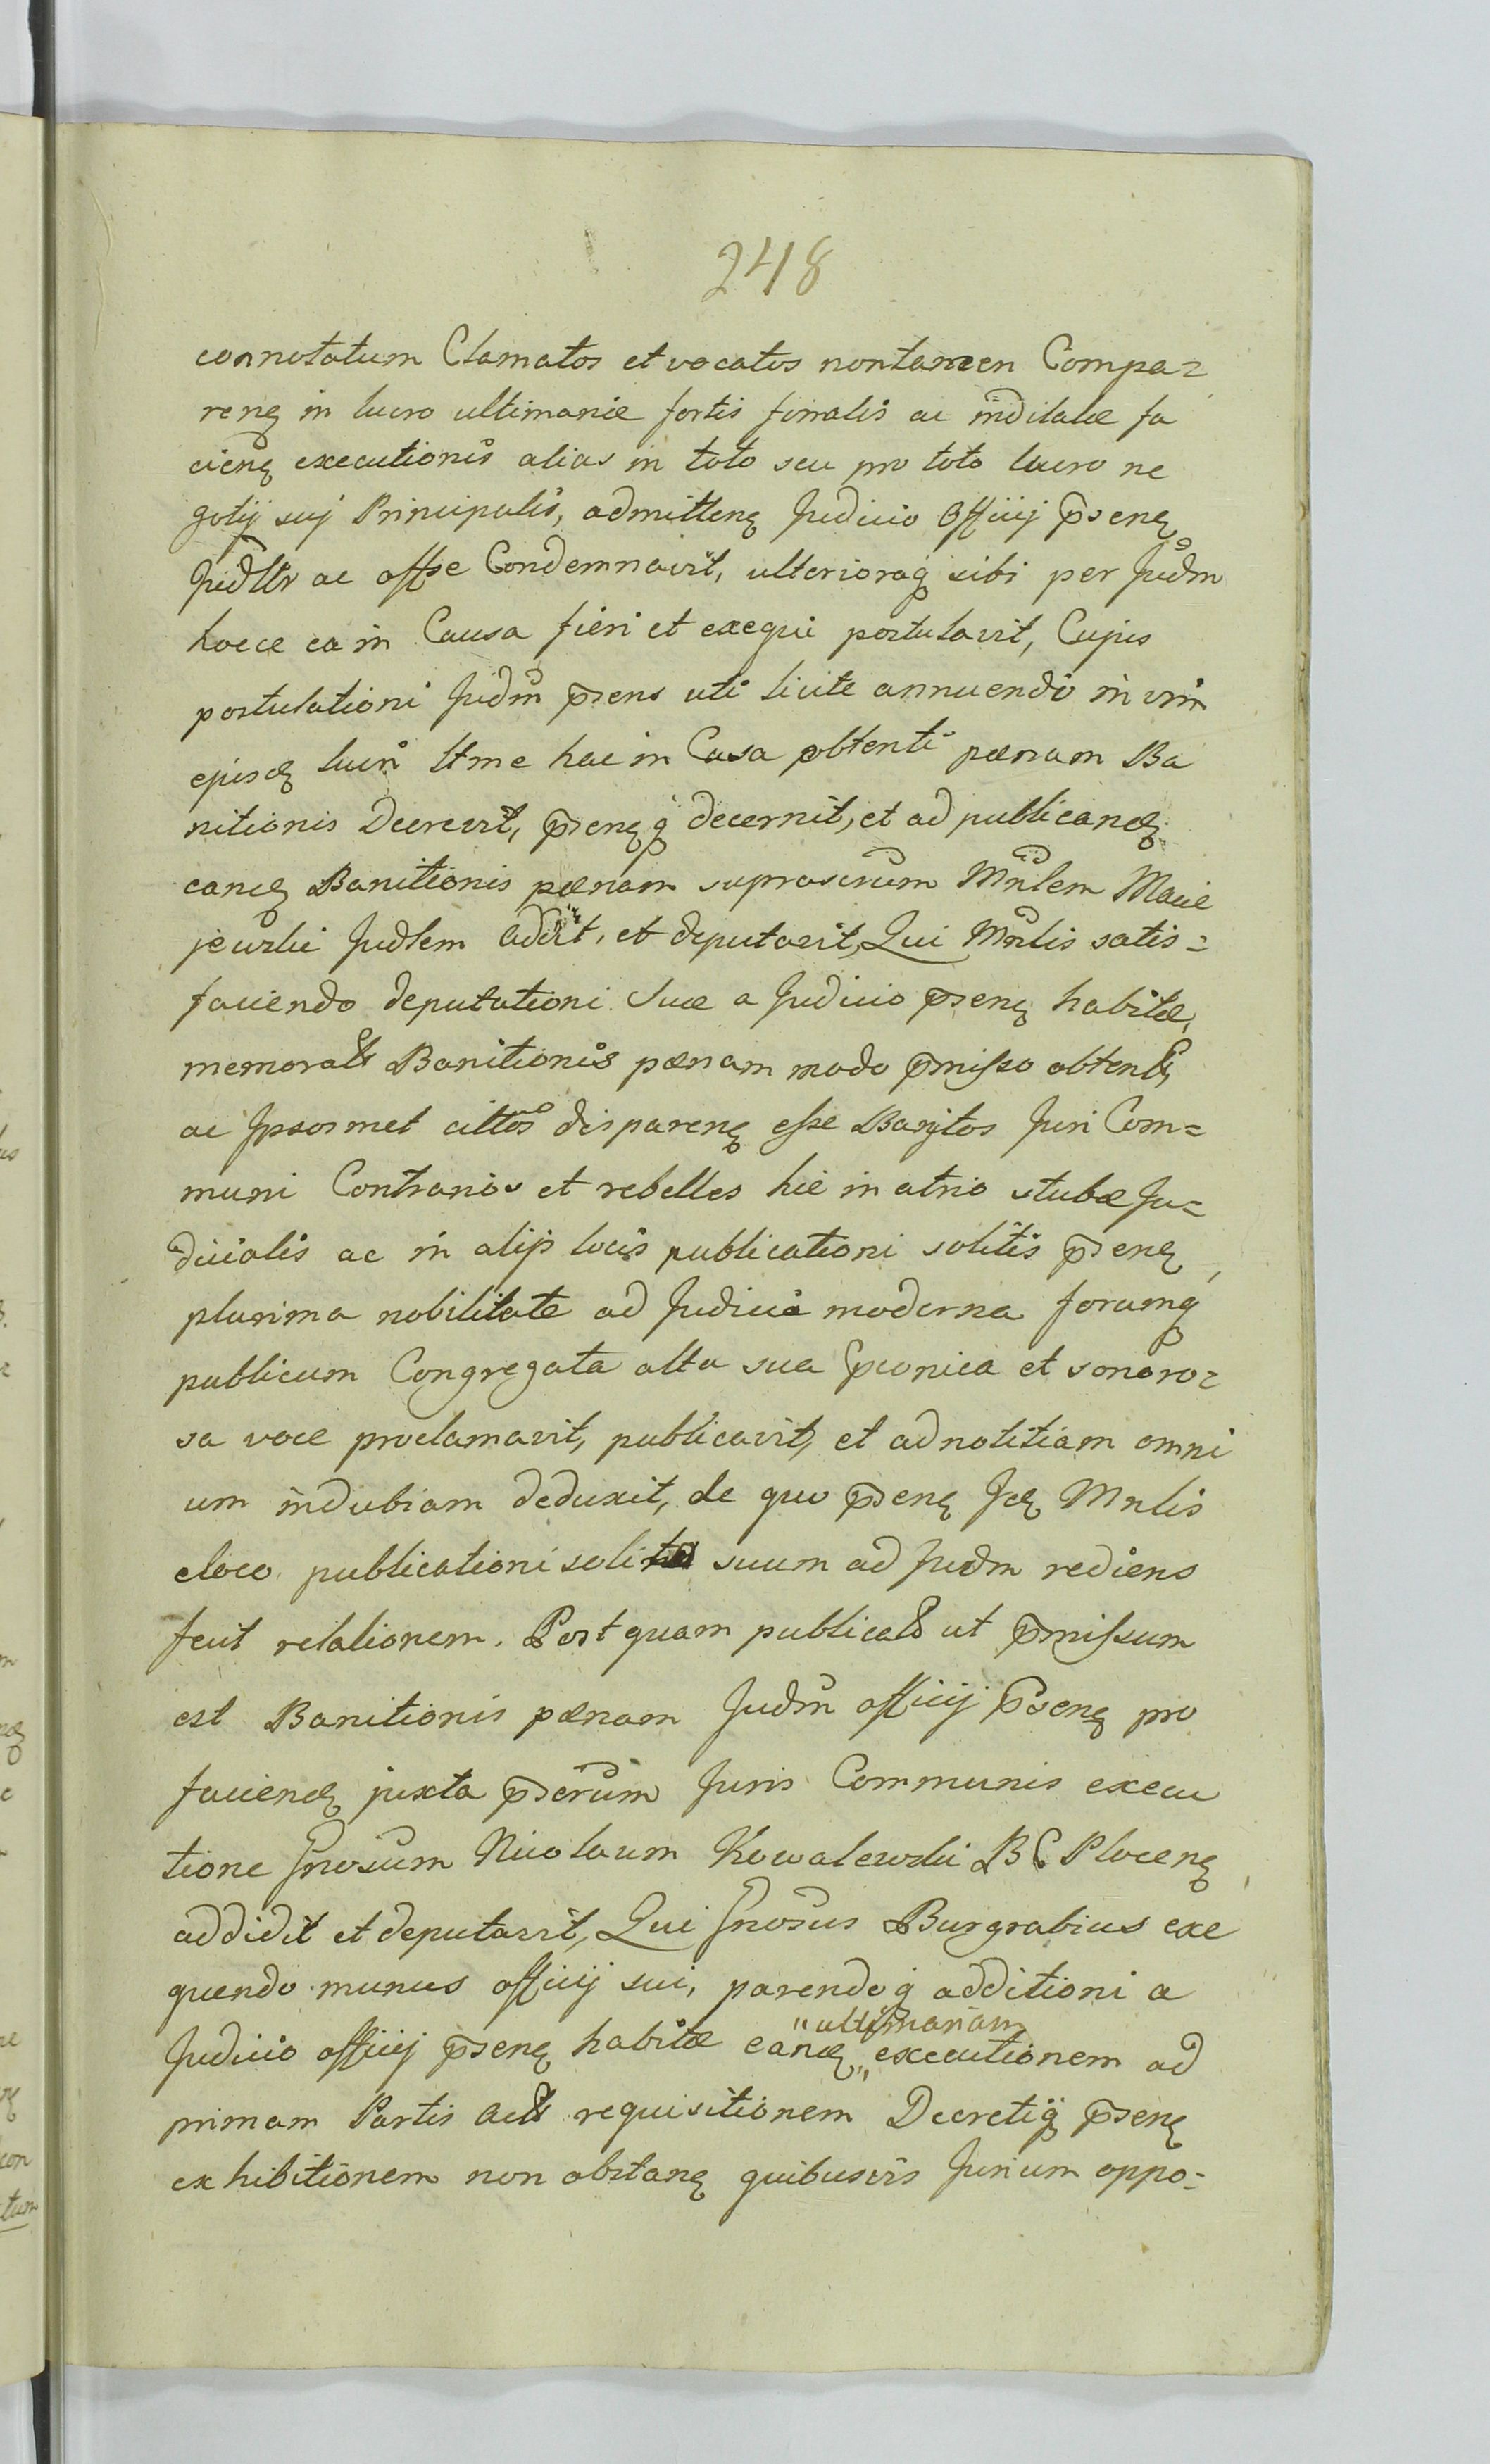 248
connotatum Clamatos et vocatos nontamen Compa=
renȩ in lucro ultimariæ fortis finalis ac indilatæ fa
cienȩ executionis alias in toto seu pro toto lucro ne
gotij suj Principalis, admittenȩ Judicio Officij p̄senȩ
Judltr ac offse Condemnavit, ulterioraq̨ sibi per Judm
hocce ea in Causa fieri et exequi postulavit, Cujus
postulationi Judm p̄sens uti licite annuendo in vim
ejusdȩ lucri ltme hac in Casa obtenti pænam Ba
nitionis Decrevit, p̄senȩq̨ decernit, et ad publicandȩ
eandȩ Banitionis pænam suprascrum Mnlem Macie
jewski Judlem addit, et deputavit, Qui Mnlis satis=
faciendo deputationi suæ a Judicio p̄senȩ habitæ,
memoratt Banitionis pænam modo p̄misso obtentt
ac Ipsosmet cittos disparenȩ esse Banitos Juri Com=
muni Contrarios et rebelles hic in atrio stubæ Ju=
dicialis ac in alijs locis publicationi solitis p̄senȩ,
plurima nobilitate ad Judicia moderna forumq̨
publicum Congregata alta sua præconica et sonoro=
sa voce proclamavit, publicavit, et ad notitiam omni
um indubiam deduxit, de quo p̄senȩ Idȩ Mnlis
eloco publicationi solito suum ad Judm rediens
fecit relationem. Post quam publicatt ut p̄missum
est Banitionis pænam Judm officij p̄senȩ pro
faciendȩ juxta p̄scrum Juris Communis execu
tione Gnosum Nicolaum Kowalewski B C Plocenȩ,
addidit et deputavit, Qui Gnosus Burgrabius exe
quendo munus officij sui, parendoq̨ additioni a
Judicio officij p̄senȩ habitæ eandȩ "ultimariam" executionem ad
primam Partis actt requisitionem Decretiq̨ p̄senȩ
exhibitionem non obstanȩ quibusvis Jurium oppo=